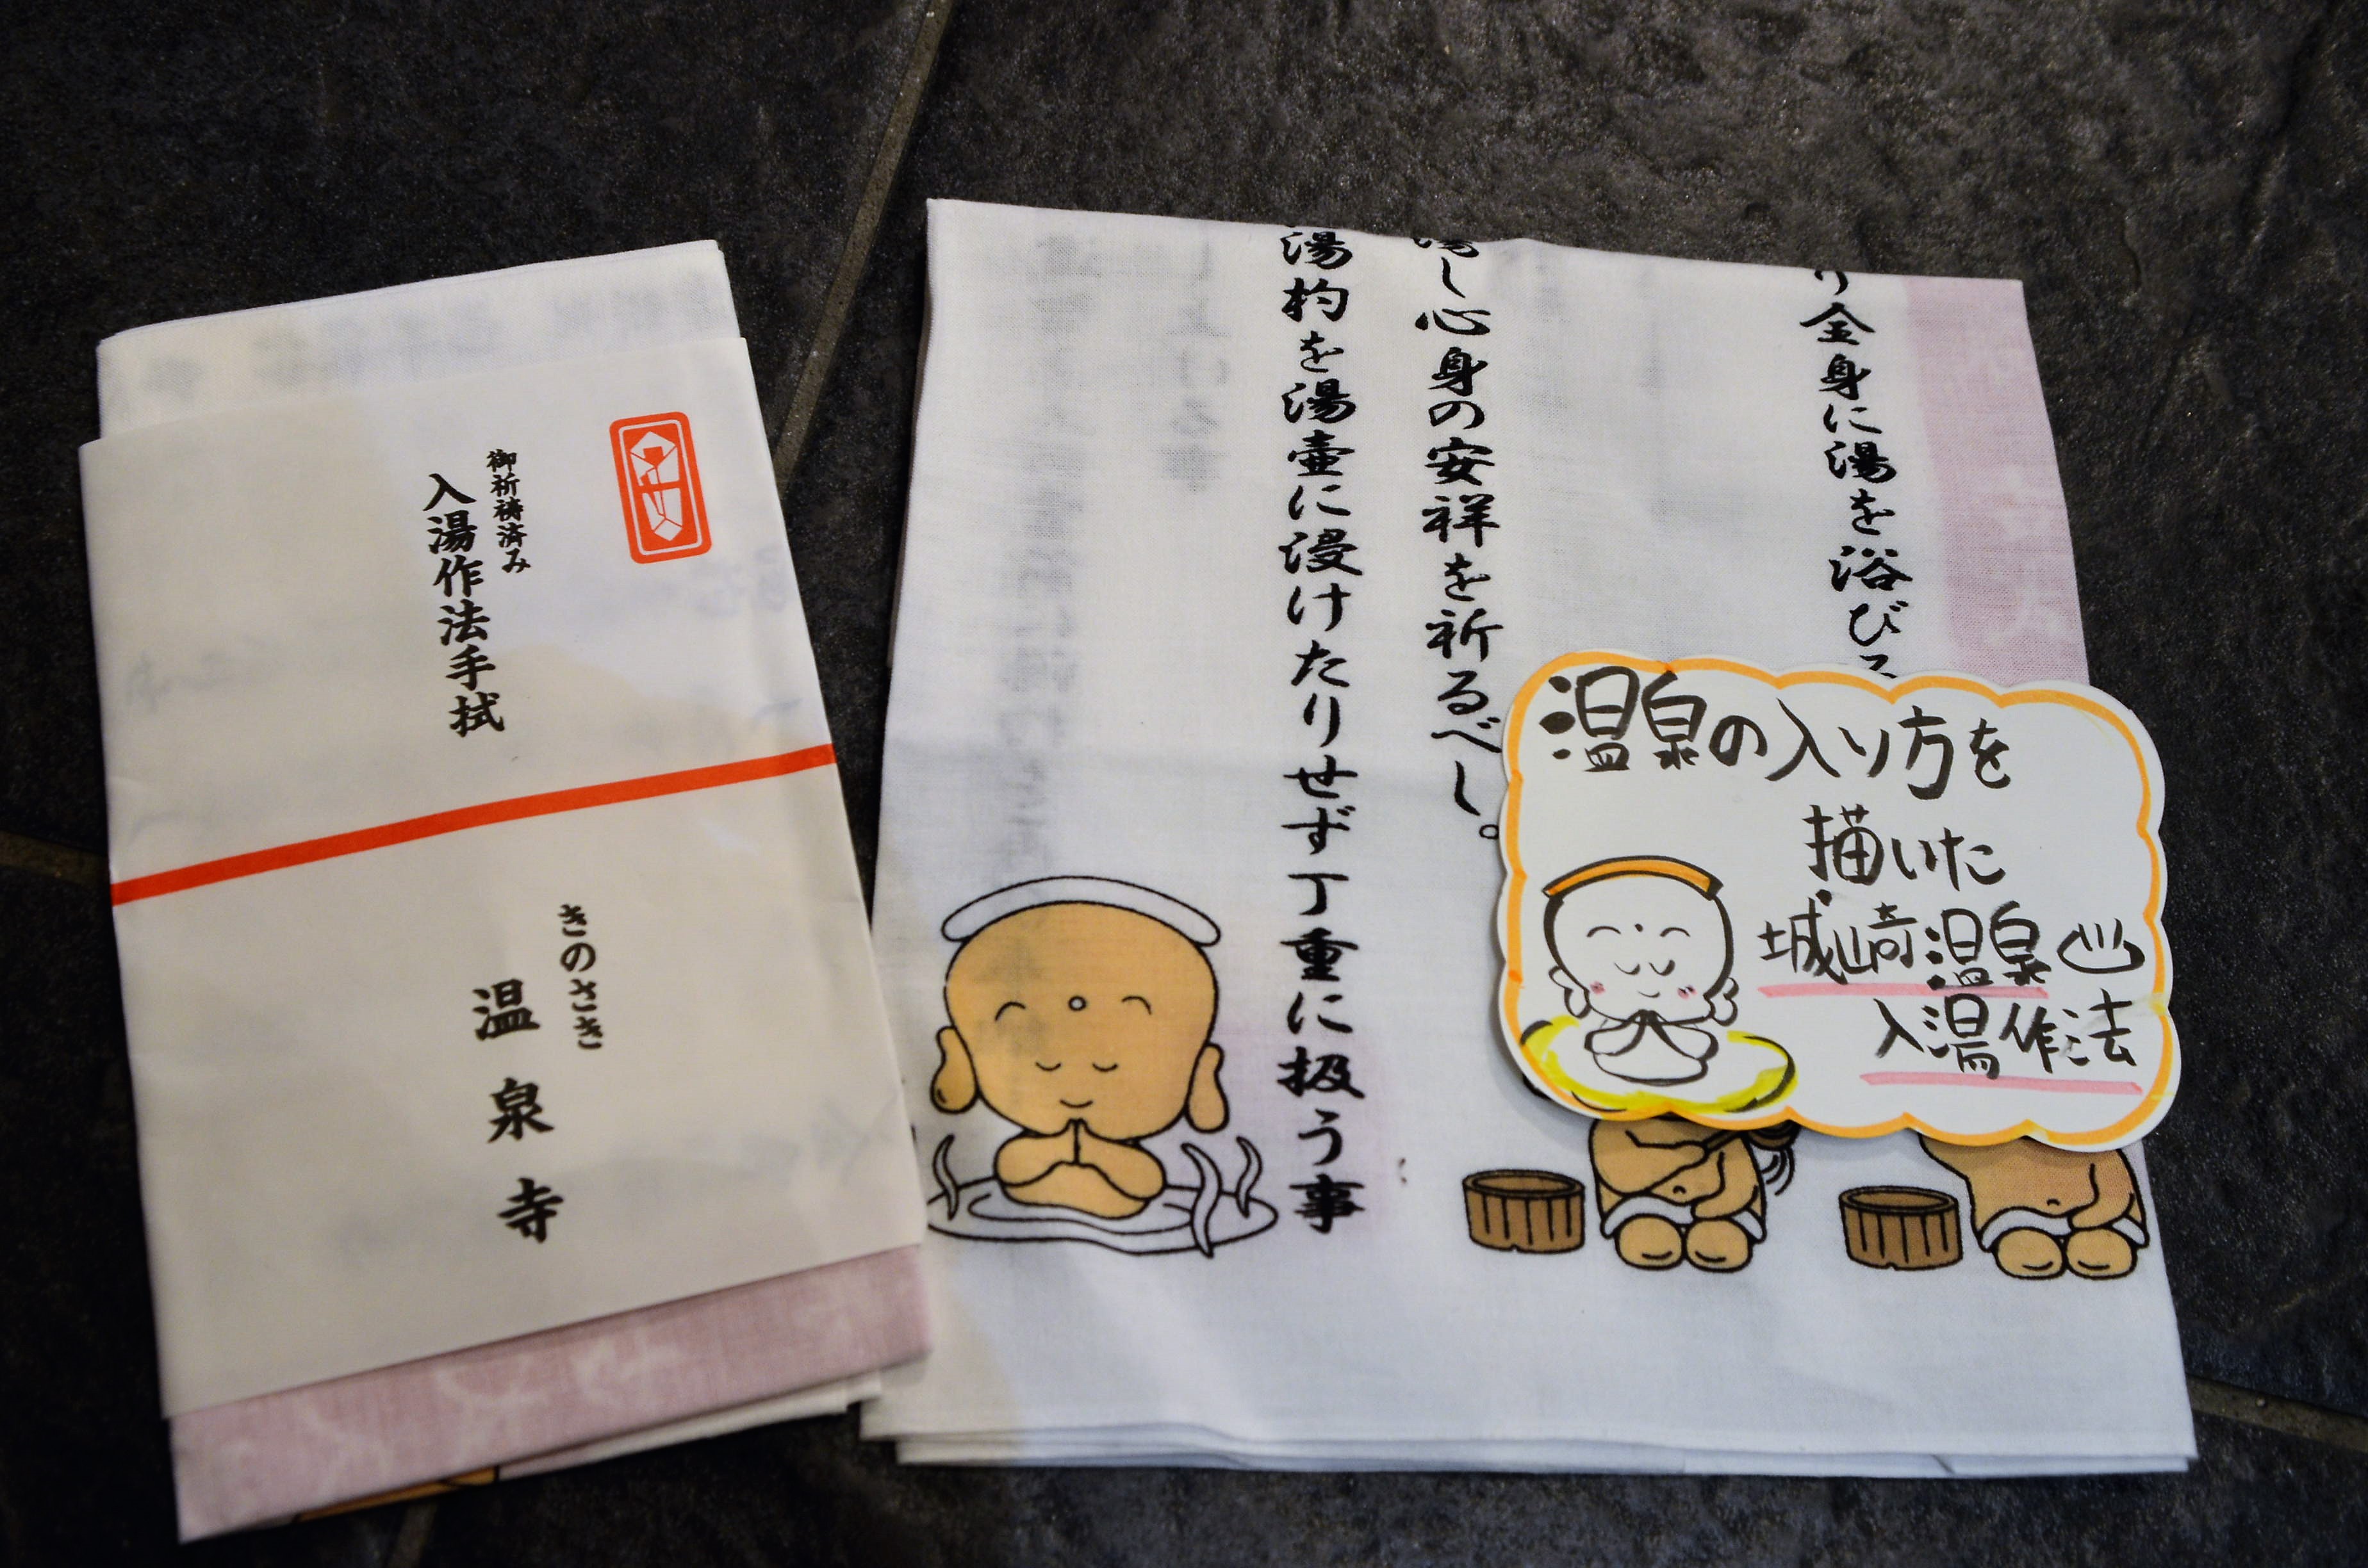 御祈祷済み
入湯作法手拭
きのさき
温泉寺
り全身に湯を浴び
し心身の安祥を祈るべし。
湯杓を湯壷に浸けたりせず丁重に扱う事
温泉の入り方を
描いた
城崎温泉♨
入湯作法